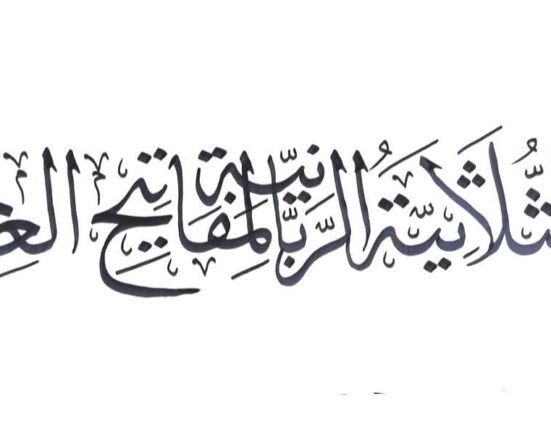 ثُّلَاثِيَّةُ الرَّبَّانِيَّة لِمَفَاتِيحِ